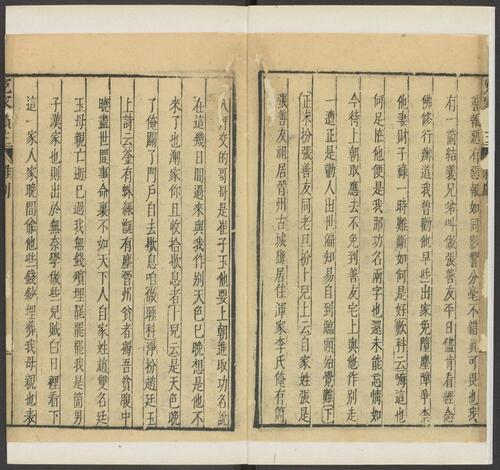 善報惡有惡報如同影響分毫不錯真可畏也我
有一箇結義兄弟叫做張善友平日儘肯看經念
佛修行辦道我曾勸他早些出家免墮塵障爭奈
他妻財子祿一時難斷如何是好歎科云嗨這也
何足怪他便是我那功名兩字也還未能忘情如
今待上朝取應去不免到善友宅上與他作别走
一遭正是勸人出世偏知易自到臨頭始覺難下
正末扮張善友同老旦扮卜兒上云自家姓張是
張善友祖居晉州古城縣居住渾家李氏俺有箇
八拜交的哥哥是崔子玉他要上朝進取功名說
在這幾日間過來與我作别天色已晚想是他不
來了也渾家你且收拾歇息者卜兒云是天色晚
了俺關了門戶自去歇息咱做睡科淨扮趙廷玉
上詩云釜有蛛絲甑有塵晉州貧者獨吾貧腹中
曉盡世間事命裏不如天下人自家姓趙雙名廷
玉母親亡逝已過我無錢殯埋罷罷罷我是箇男
子漢家也則出於無奈學做些兒賊白日裡看下
這一家人家晚間偷他些錢鈔埋葬我母親也表